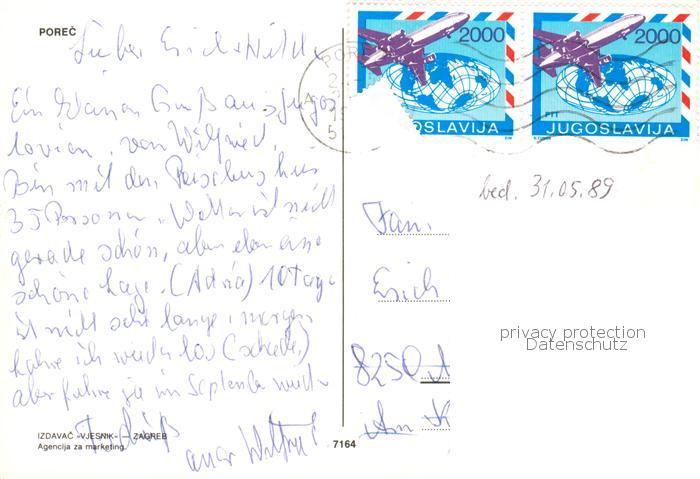 POREČ
Lieber Erich + Hilde
Ein Gruß aus Jugos
lavien, von Wilfried
Bin mit dem hier
35 Personen. Wetter ist nicht
gerade schön, aber eben eine
schöne Lage. (Adria) 10 Tage
ist nicht sehr lange, morgen
fahre ich wieder los (schade,)
aber fahre ja im September
euer Wilfried
IZDAVAČ «VJESNIK» — ZAGREB
Agencija za marketing
7164
2000
PTT
JUGOSLAVIJA
2000
JUGOSLAVIJA
bed. 31.05.89
Fam.
Erich
8250
Am
privacy protection
Datenschutz